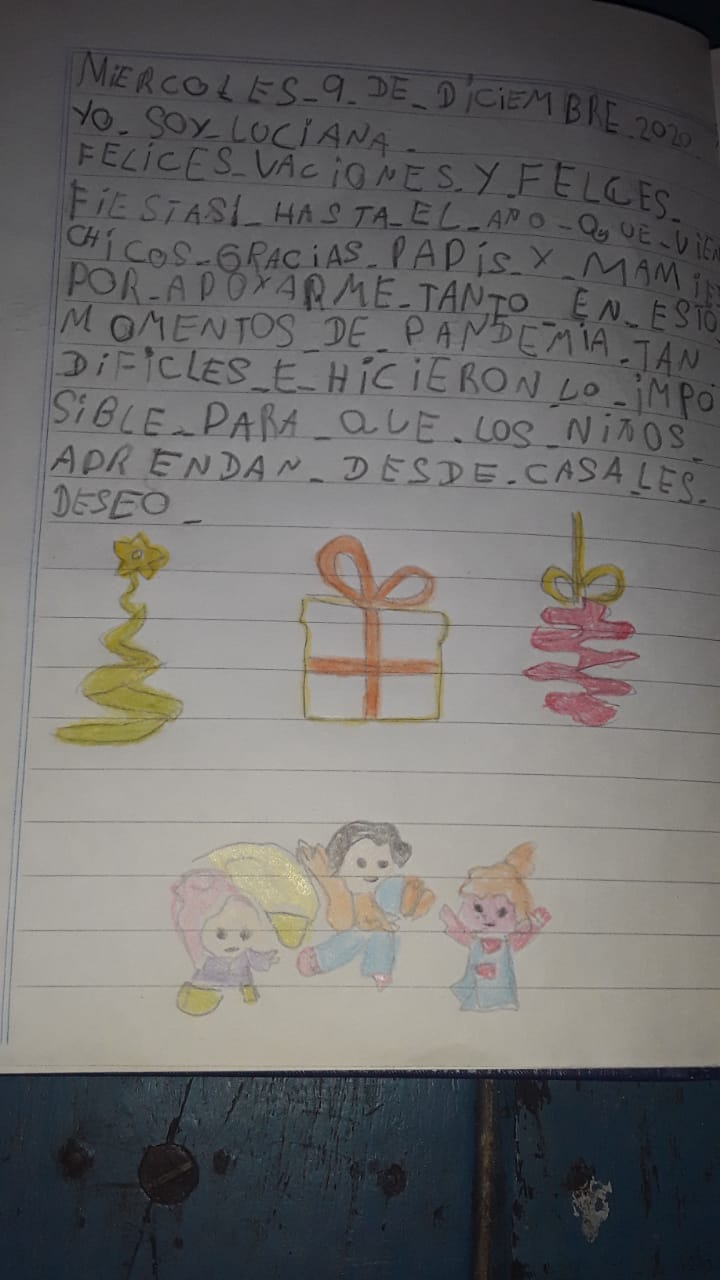 MIERCOLES_9_DE_DICIEMBRE_2020
YO_SOY_LUCIANA_
FELICES_VACIONES_Y_FELCES_
FIESTAS!_HASTA_EL_AÑO_QUE_VIEN
CHICOS_GRACIAS_PAPIS_Y_MAMIES
POR_APOYARME_TANTO_EN_ESTO
MOMENTOS_DE_PANDEMIA_TAN
DIFICLES_E_HICIERON_LO_IMPO
SIBLE_PARA_QUE_LOS_NIÑOS_
APRENDAN_DESDE_CASA_LES_
DESEO_